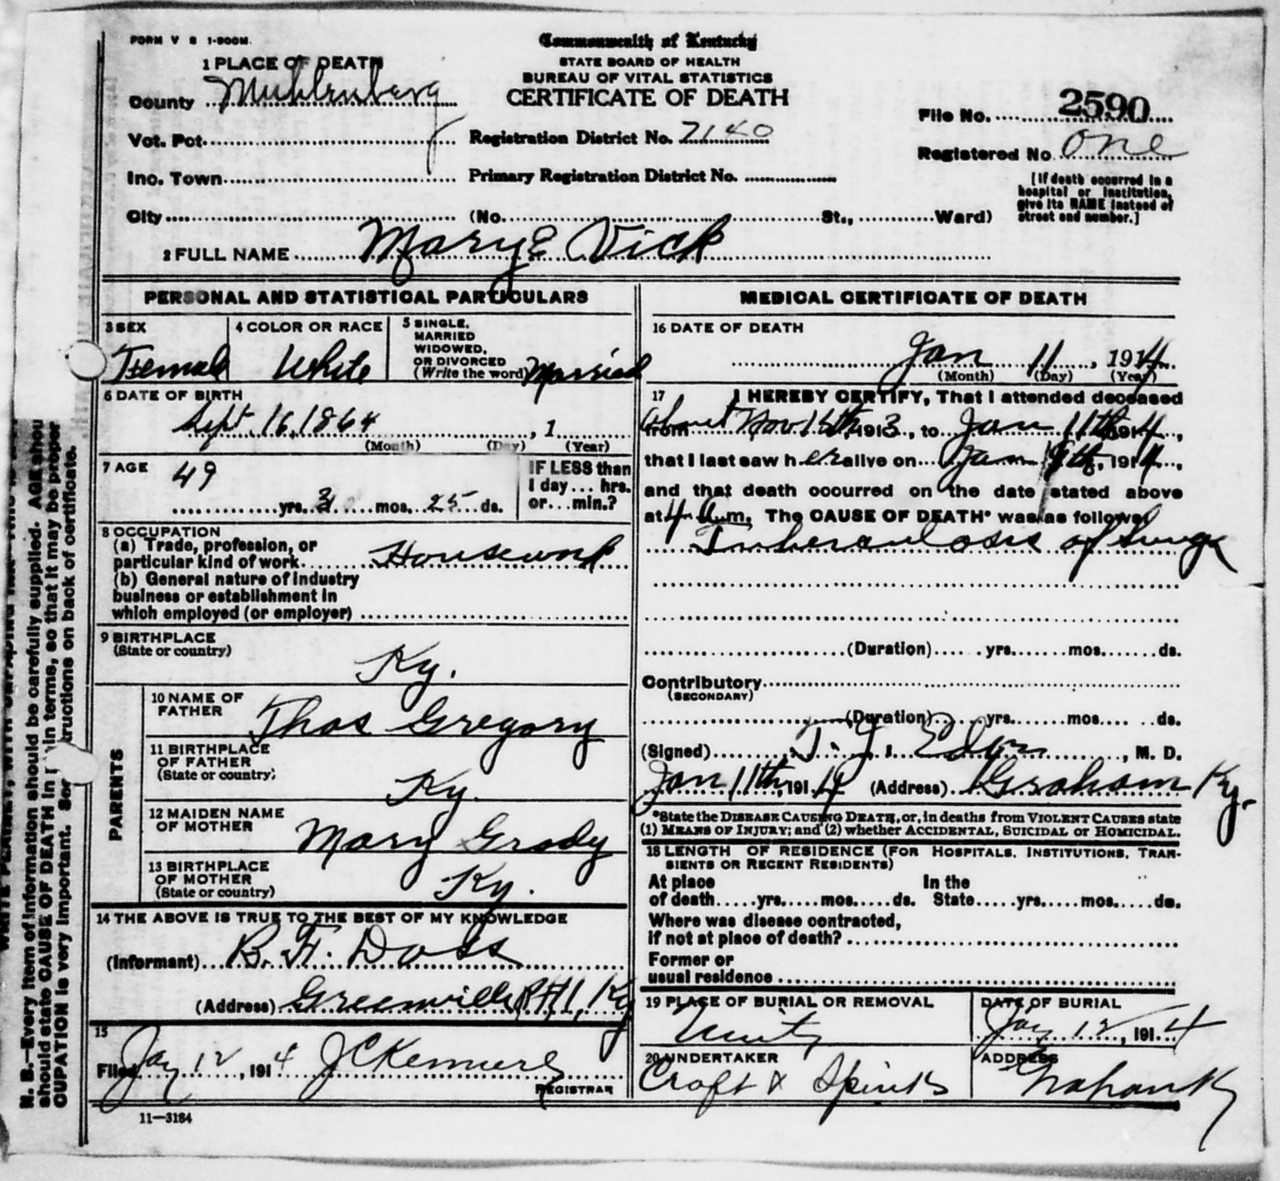 FORM V S 1-500M.
Commonwealth of Kentucky
STATE BOARD OF HEALTH
BUREAU OF VITAL STATISTICS
CERTIFICATE OF DEATH
1 PLACE OF DEATH
County Muhlenberg
Vot. Pct.
Inc. Town
City (No. St., Ward)
Registration District No. 7140
Primary Registration District No.
File No. 2590
Registered No. One
[If death occurred in a
hospital or institution,
give its NAME instead of
street and number.]
2 FULL NAME Mary E Vick
PERSONAL AND STATISTICAL PARTICULARS
3 SEX
Female
4 COLOR OR RACE
White
5 SINGLE,
MARRIED
WIDOWED,
OR DIVORCED
(Write the word) Married
6 DATE OF BIRTH
Sept. 16, 1864 , 1
(Month) (Day) (Year)
7 AGE
49 yrs. 3 mos. 25 ds.
IF LESS than
1 day... hrs.
or...min.?
8 OCCUPATION
(a) Trade, profession, or
particular kind of work Housework
(b) General nature of Industry
business or establishment in
which employed (or employer)
9 BIRTHPLACE
(State or country)
Ky.
PARENTS
10 NAME OF
FATHER
Thos Gregory
11 BIRTHPLACE
OF FATHER
(State or country)
Ky.
12 MAIDEN NAME
OF MOTHER
Mary Grady
13 BIRTHPLACE
OF MOTHER
(State or country)
Ky.
14 THE ABOVE IS TRUE TO THE BEST OF MY KNOWLEDGE
(Informant) B. F. Doss
(Address) Greenville R#1, Ky
15
Filed Jan 12, 1914 J C
REGISTRAR
11-3184
MEDICAL CERTIFICATE OF DEATH
16 DATE OF DEATH
Jan 11, 1914
(Month) (Day) (Year)
17 I HEREBY CERTIFY, That I attended deceased
from about Nov 15th, 1913, to Jan 11th 1914,
that I last saw her alive on Jan 9th, 1914,
and that death occurred on the date stated above
at 4 a m. The CAUSE OF DEATH* was as follows
Tuberculosis of lungs
(Duration) yrs. mos. ds.
Contributory
(SECONDARY)
(Duration) yrs. mos. ds.
(Signed) T. J. , M. D.
Jan 11th, 1914 (Address) Graham Ky.
*State the DISEASE CAUSING DEATH, or, in deaths from VIOLENT CAUSES state
(1) MEANS OF INJURY; and (2) whether ACCIDENTAL, SUICIDAL or HOMICIDAL.
18 LENGTH OF RESIDENCE (FOR HOSPITALS, INSTITUTIONS, TRAN-
SIENTS OR RECENT RESIDENTS)
At place
of death yrs. mos. ds.
In the
State yrs. mos. ds.
Where was disease contracted,
if not at place of death?
Former or
usual residence
19 PLACE OF BURIAL OR REMOVAL
Unity
DATE OF BURIAL
Jan 12, 1914
20 UNDERTAKER
Croft & Spinks
ADDRESS
Graham Ky
N. B.—Every item of information should be carefully supplied. AGE shou
should state CAUSE OF DEATH in in terms, so that it may be proper
CUPATION is very important. See tructions on back of certificate.